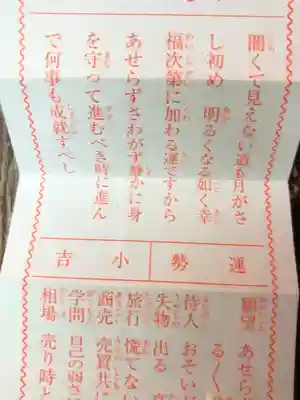 闇くて見えない道も月がさ
し初め 明るくなる如く幸
福次第に加わる運ですから
あせらずさわがず静かに身
を守って進むべき時に進ん
で何事も成就すべし
運勢
小吉
願望 あせら
るく
待人 おそい
失物 出る
旅行 慌てない
商売 売買共に
学問 自己の弱さ
相場 売り時と